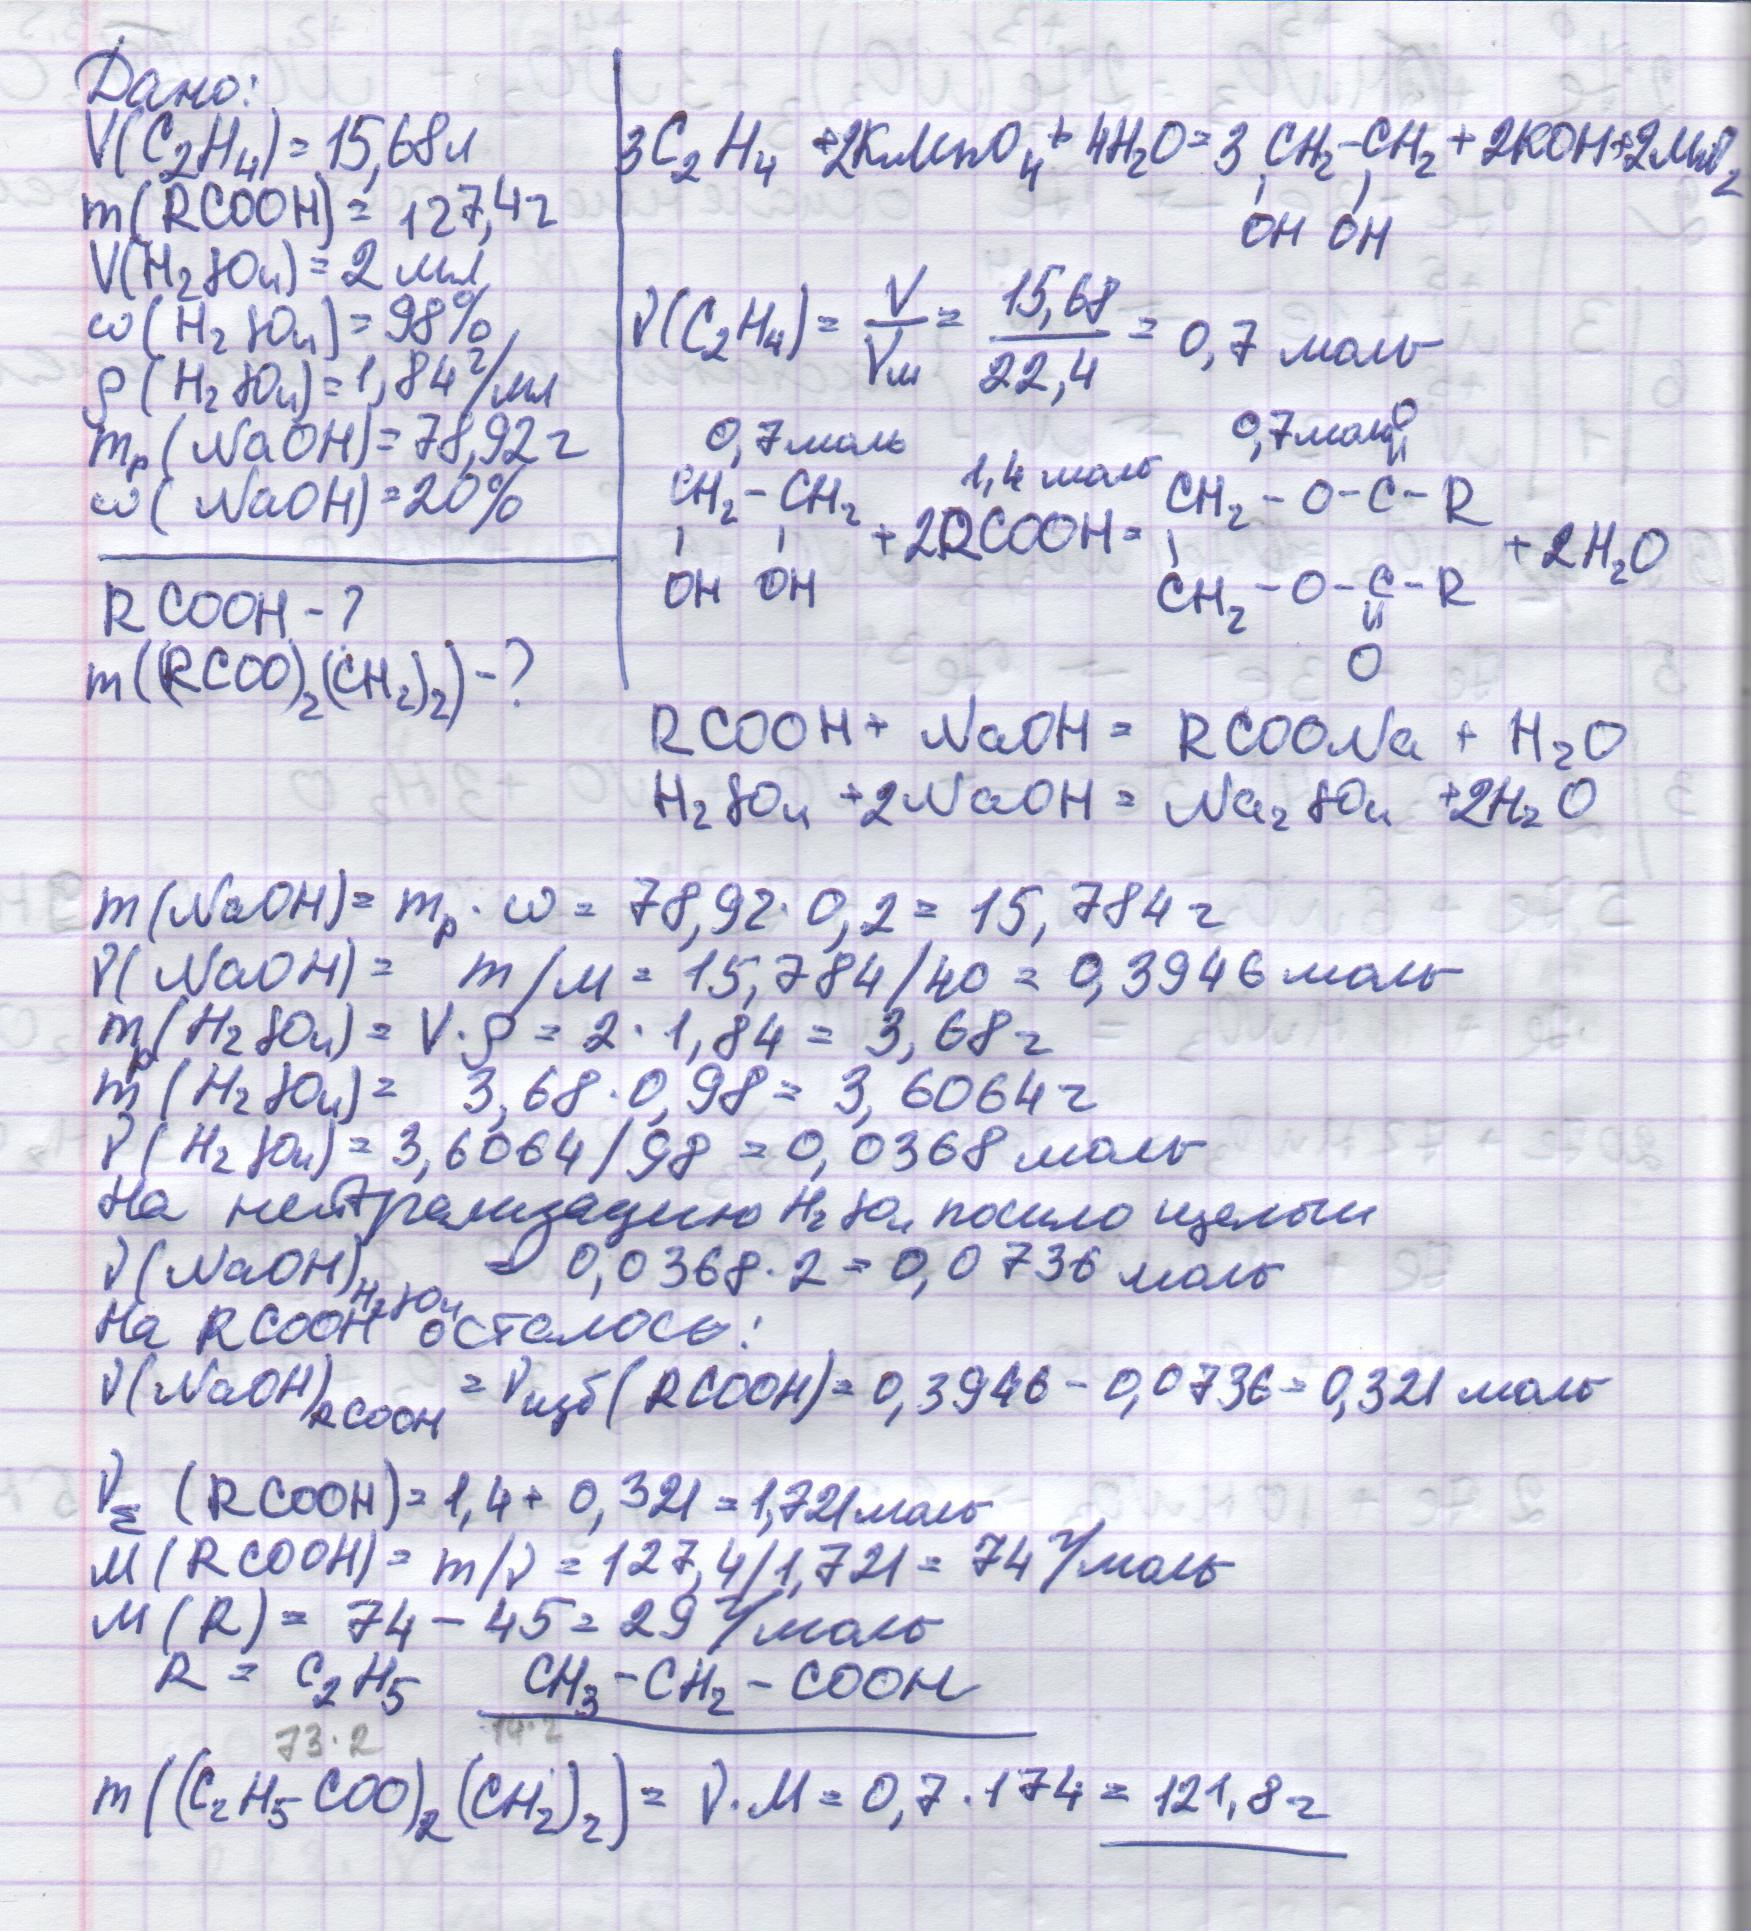 Дано:
V(C2H4) = 15,68 л
m(RCOOH) = 127,4 г
V(H2SO4) = 2 мл
ω(H2SO4) = 98%
ρ(H2SO4) = 1,84 г/мл
mр(NaOH) = 78,92 г
ω(NaOH) = 20%
RCOOH - ?
m((RCOO)2(CH2)2) - ?
3C2H4 + 2KMnO4 + 4H2O = 3 CH2-CH2 + 2KOH + 2MnO2
OH OH
ν(C2H4) = V/Vм = 15,68/22,4 = 0,7 моль
0,7 моль 1,4 моль 0,7 моль O
CH2-CH2 CH2-O-C-R
+ 2RCOOH = + 2H2O
OH OH CH2-O-C-R
O
RCOOH + NaOH = RCOONa + H2O
H2SO4 + 2NaOH = Na2SO4 + 2H2O
m(NaOH) = mр · ω = 78,92 · 0,2 = 15,784 г
ν(NaOH) = m/M = 15,784/40 = 0,3946 моль
mр(H2SO4) = V · ρ = 2 · 1,84 = 3,68 г
m(H2SO4) = 3,68 · 0,98 = 3,6064 г
ν(H2SO4) = 3,6064/98 = 0,0368 моль
На нейтрализацию H2SO4 пошло щелочи
ν(NaOH)H2SO4 = 0,0368 · 2 = 0,0736 моль
На RCOOH осталось:
ν(NaOH)RCOOH = νизб(RCOOH) = 0,3946 - 0,0736 = 0,321 моль
νΣ (RCOOH) = 1,4 + 0,321 = 1,721 моль
M(RCOOH) = m/ν = 127,4/1,721 = 74 г/моль
M(R) = 74 - 45 = 29 г/моль
R = C2H5 CH3-CH2-COOH
73·2 14·2
m((C2H5COO)2(CH2)2) = ν · M = 0,7 · 174 = 121,8 г